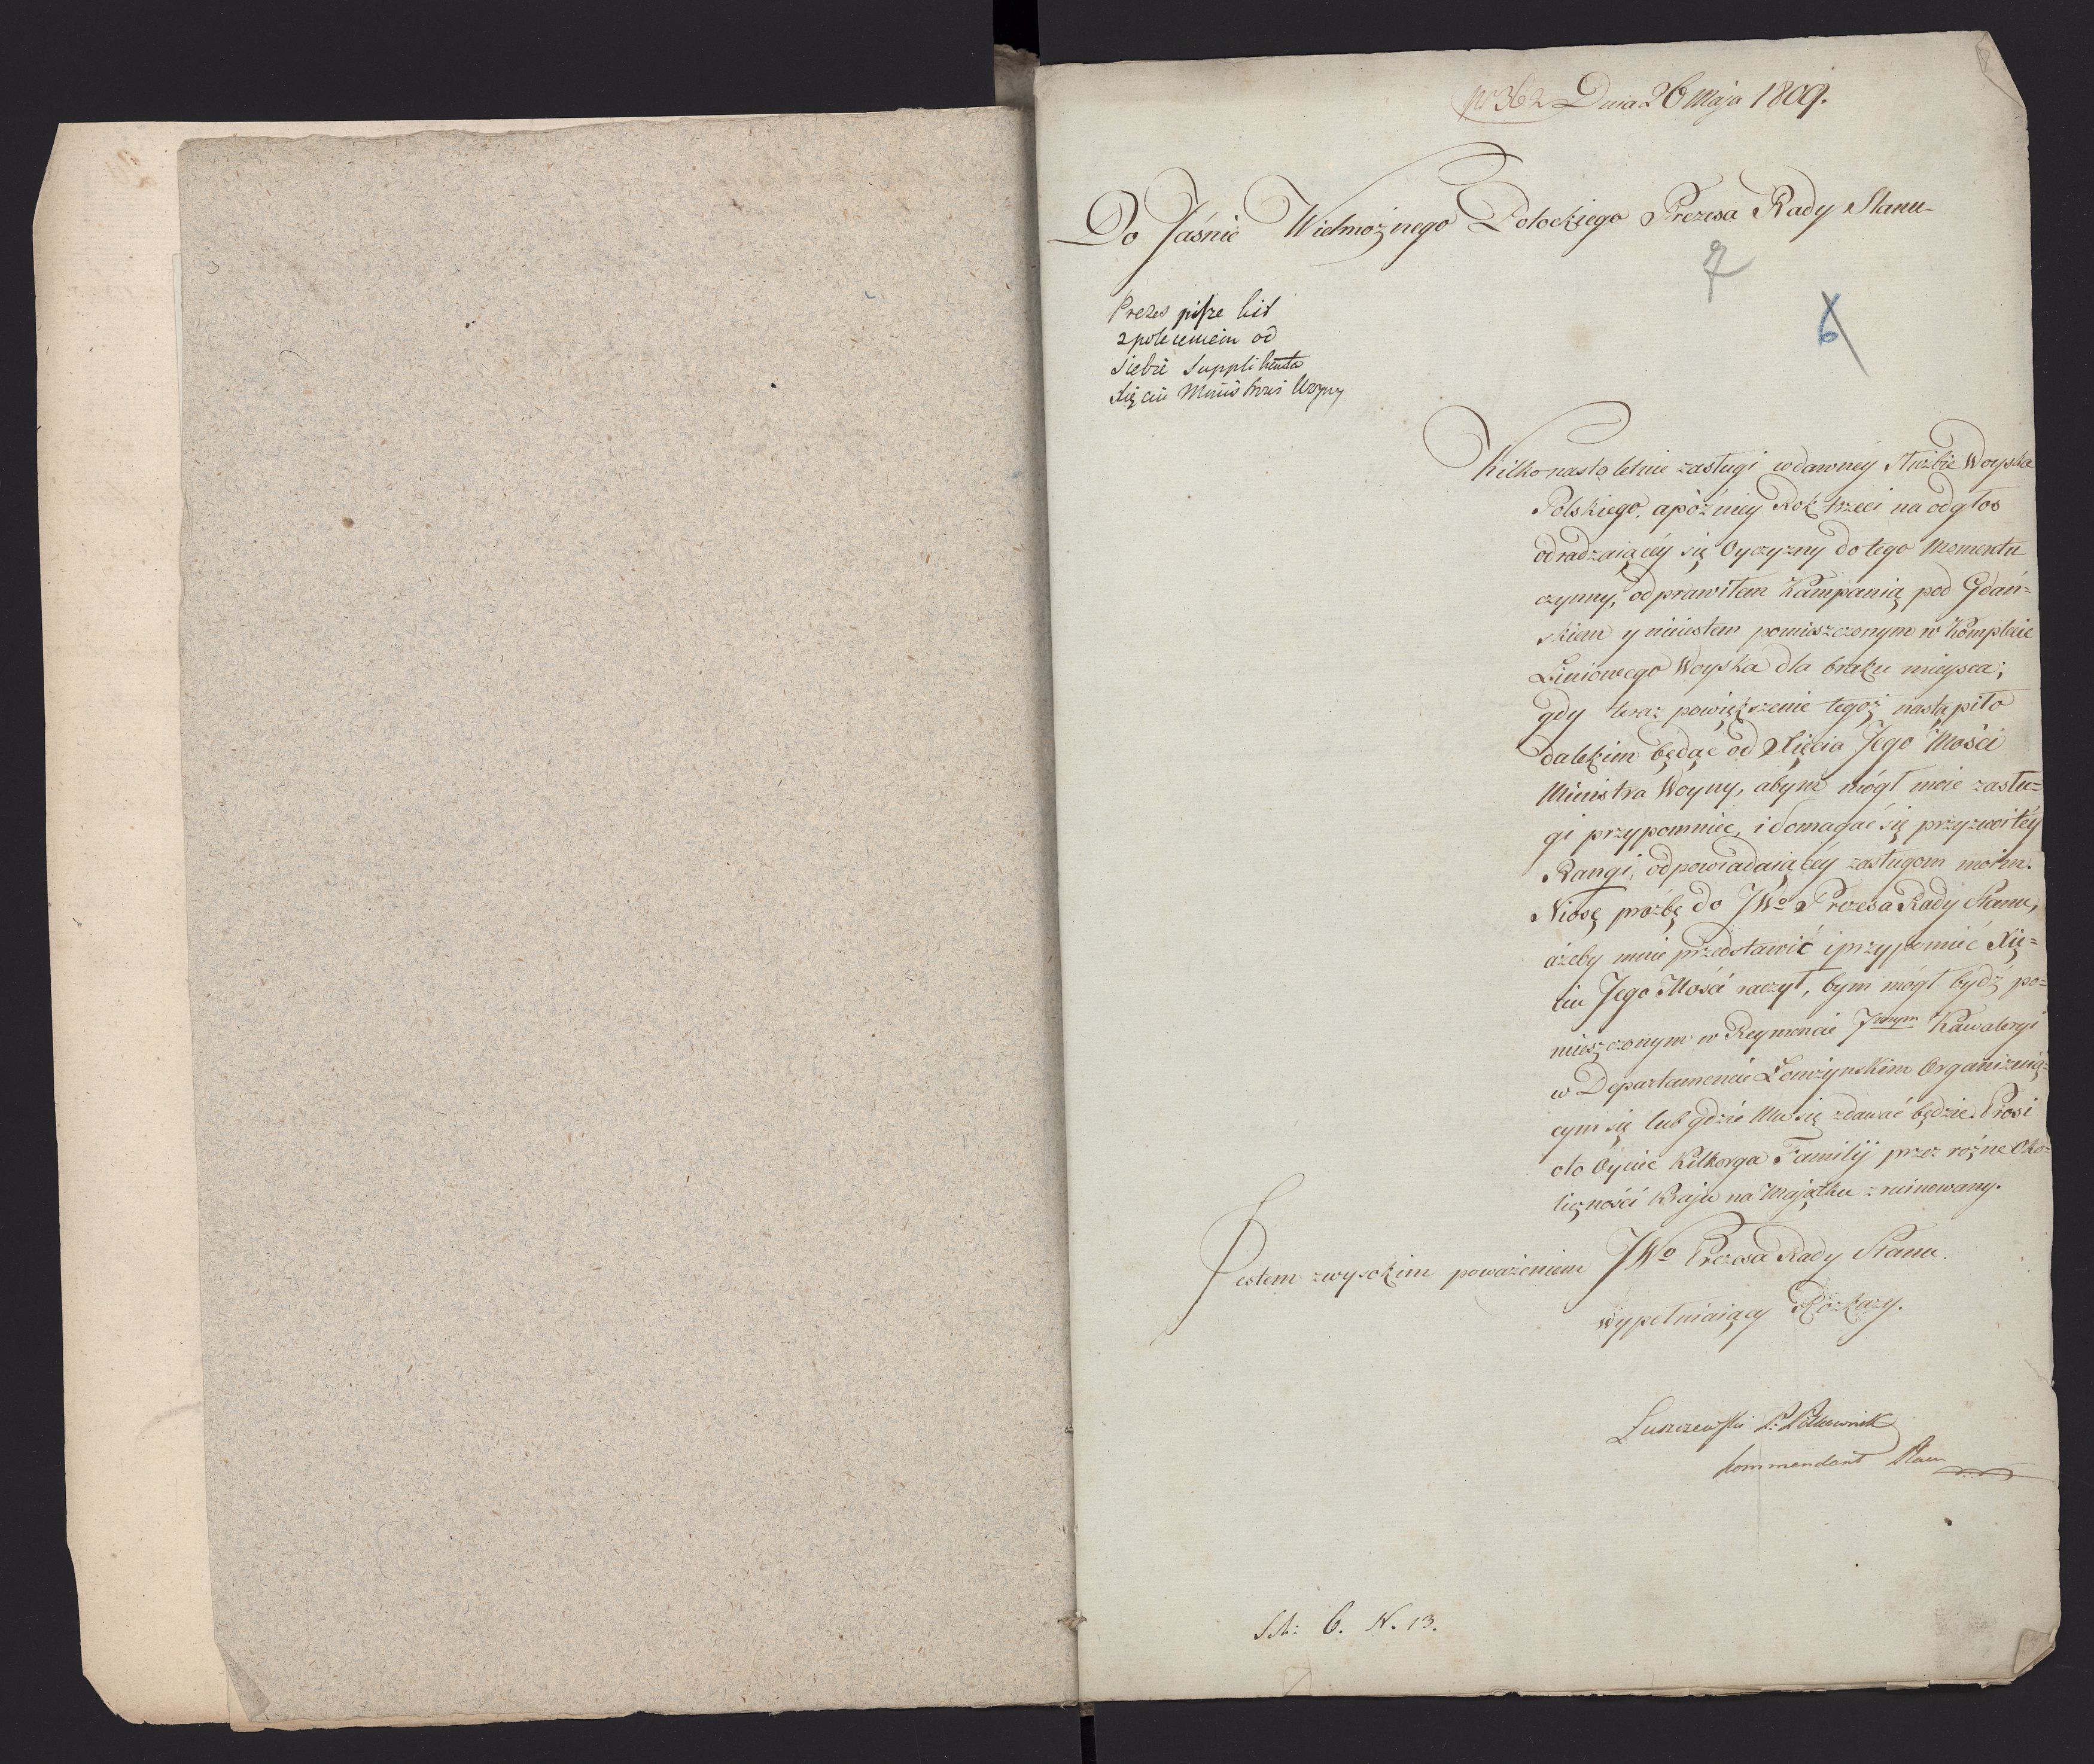 Nr 362 Dnia 26 Maja 1809.
Do Jaśnie Wielmożnego Potockiego Prezesa Rady Stanu
7
6
Prezes pisze list
z poleceniem od
siebie Supplikanta
Xięciu Ministrowi Woyny
Kilkonasto letnie zasługi w dawnéy służbie Woyska
Polskiego, a późniey Rok trzeci na odgłos
odradzaiącéy się Oyczyzny do tego Momentu
czynny, odprawiłem Kampanią pod Gdań=
skiem y nieiestem pomieszczonym w Komplecie
Liniowego Woyska dla braku mieysca;
gdy teraz powiększenie tegoż nastąpiło
dalekim będąc od Xięcia Jego Mości
Ministra Woyny, abym mógł moie zasłu=
gi przypomnieć, i domagać się przyzwoitéy
Rangi, odpowiadaiącéy zasługom moim.
Niosę proźbę do JWo Prezesa Rady Stanu,
ażeby mnie przedstawić i przypomnić Xię=
ciu Jego Mości raczył, bym mógł bydź po=
mieszczonym w Reymencie Kawaleryi
w Departamencie Łomżynskim Organizuią=
cym się lub gdzie Mu się zdawać będzie. Prosi
o to Oyciec Kilkorga Familij przez rożne Oko=
licznośći Kraju na Majątku zruinowany.
Jestem z wysokim poważeniem JWo Prezesa Rady Stanu.
wypełniaiący Rozkazy.
Luszczewski P: Półkownik
Kommendant
Sch: 6. N. 13.